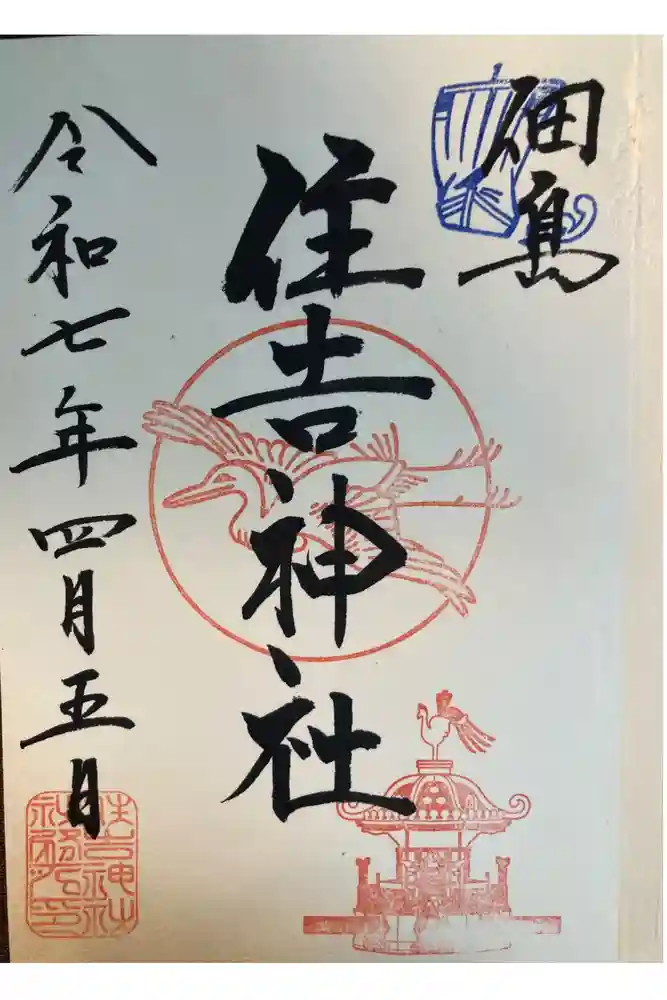 佃島
住吉神社
令和七年四月五日
住吉神社
社務所之印